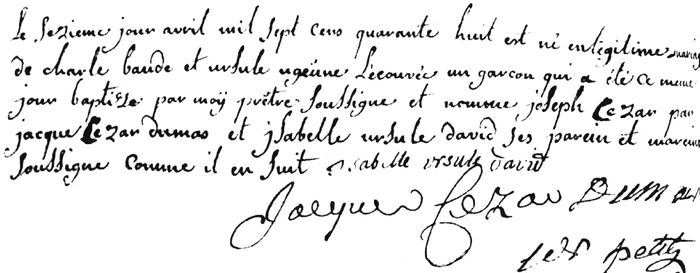 Le sezieme jour avril mil sept cens quarante huit est né en legitime mariag
de charle baude et ursule eugeune Lecouvée un garçon qui a été ce meme
jour baptise par moÿ prêtre soussigne et nomme joseph Cezar par
jacque Cezar dumas et jsabelle ursule david ses parein et mareine
soussigne comme il en suit jsabelle ursule david
Jacques Cezar Dumas
petit